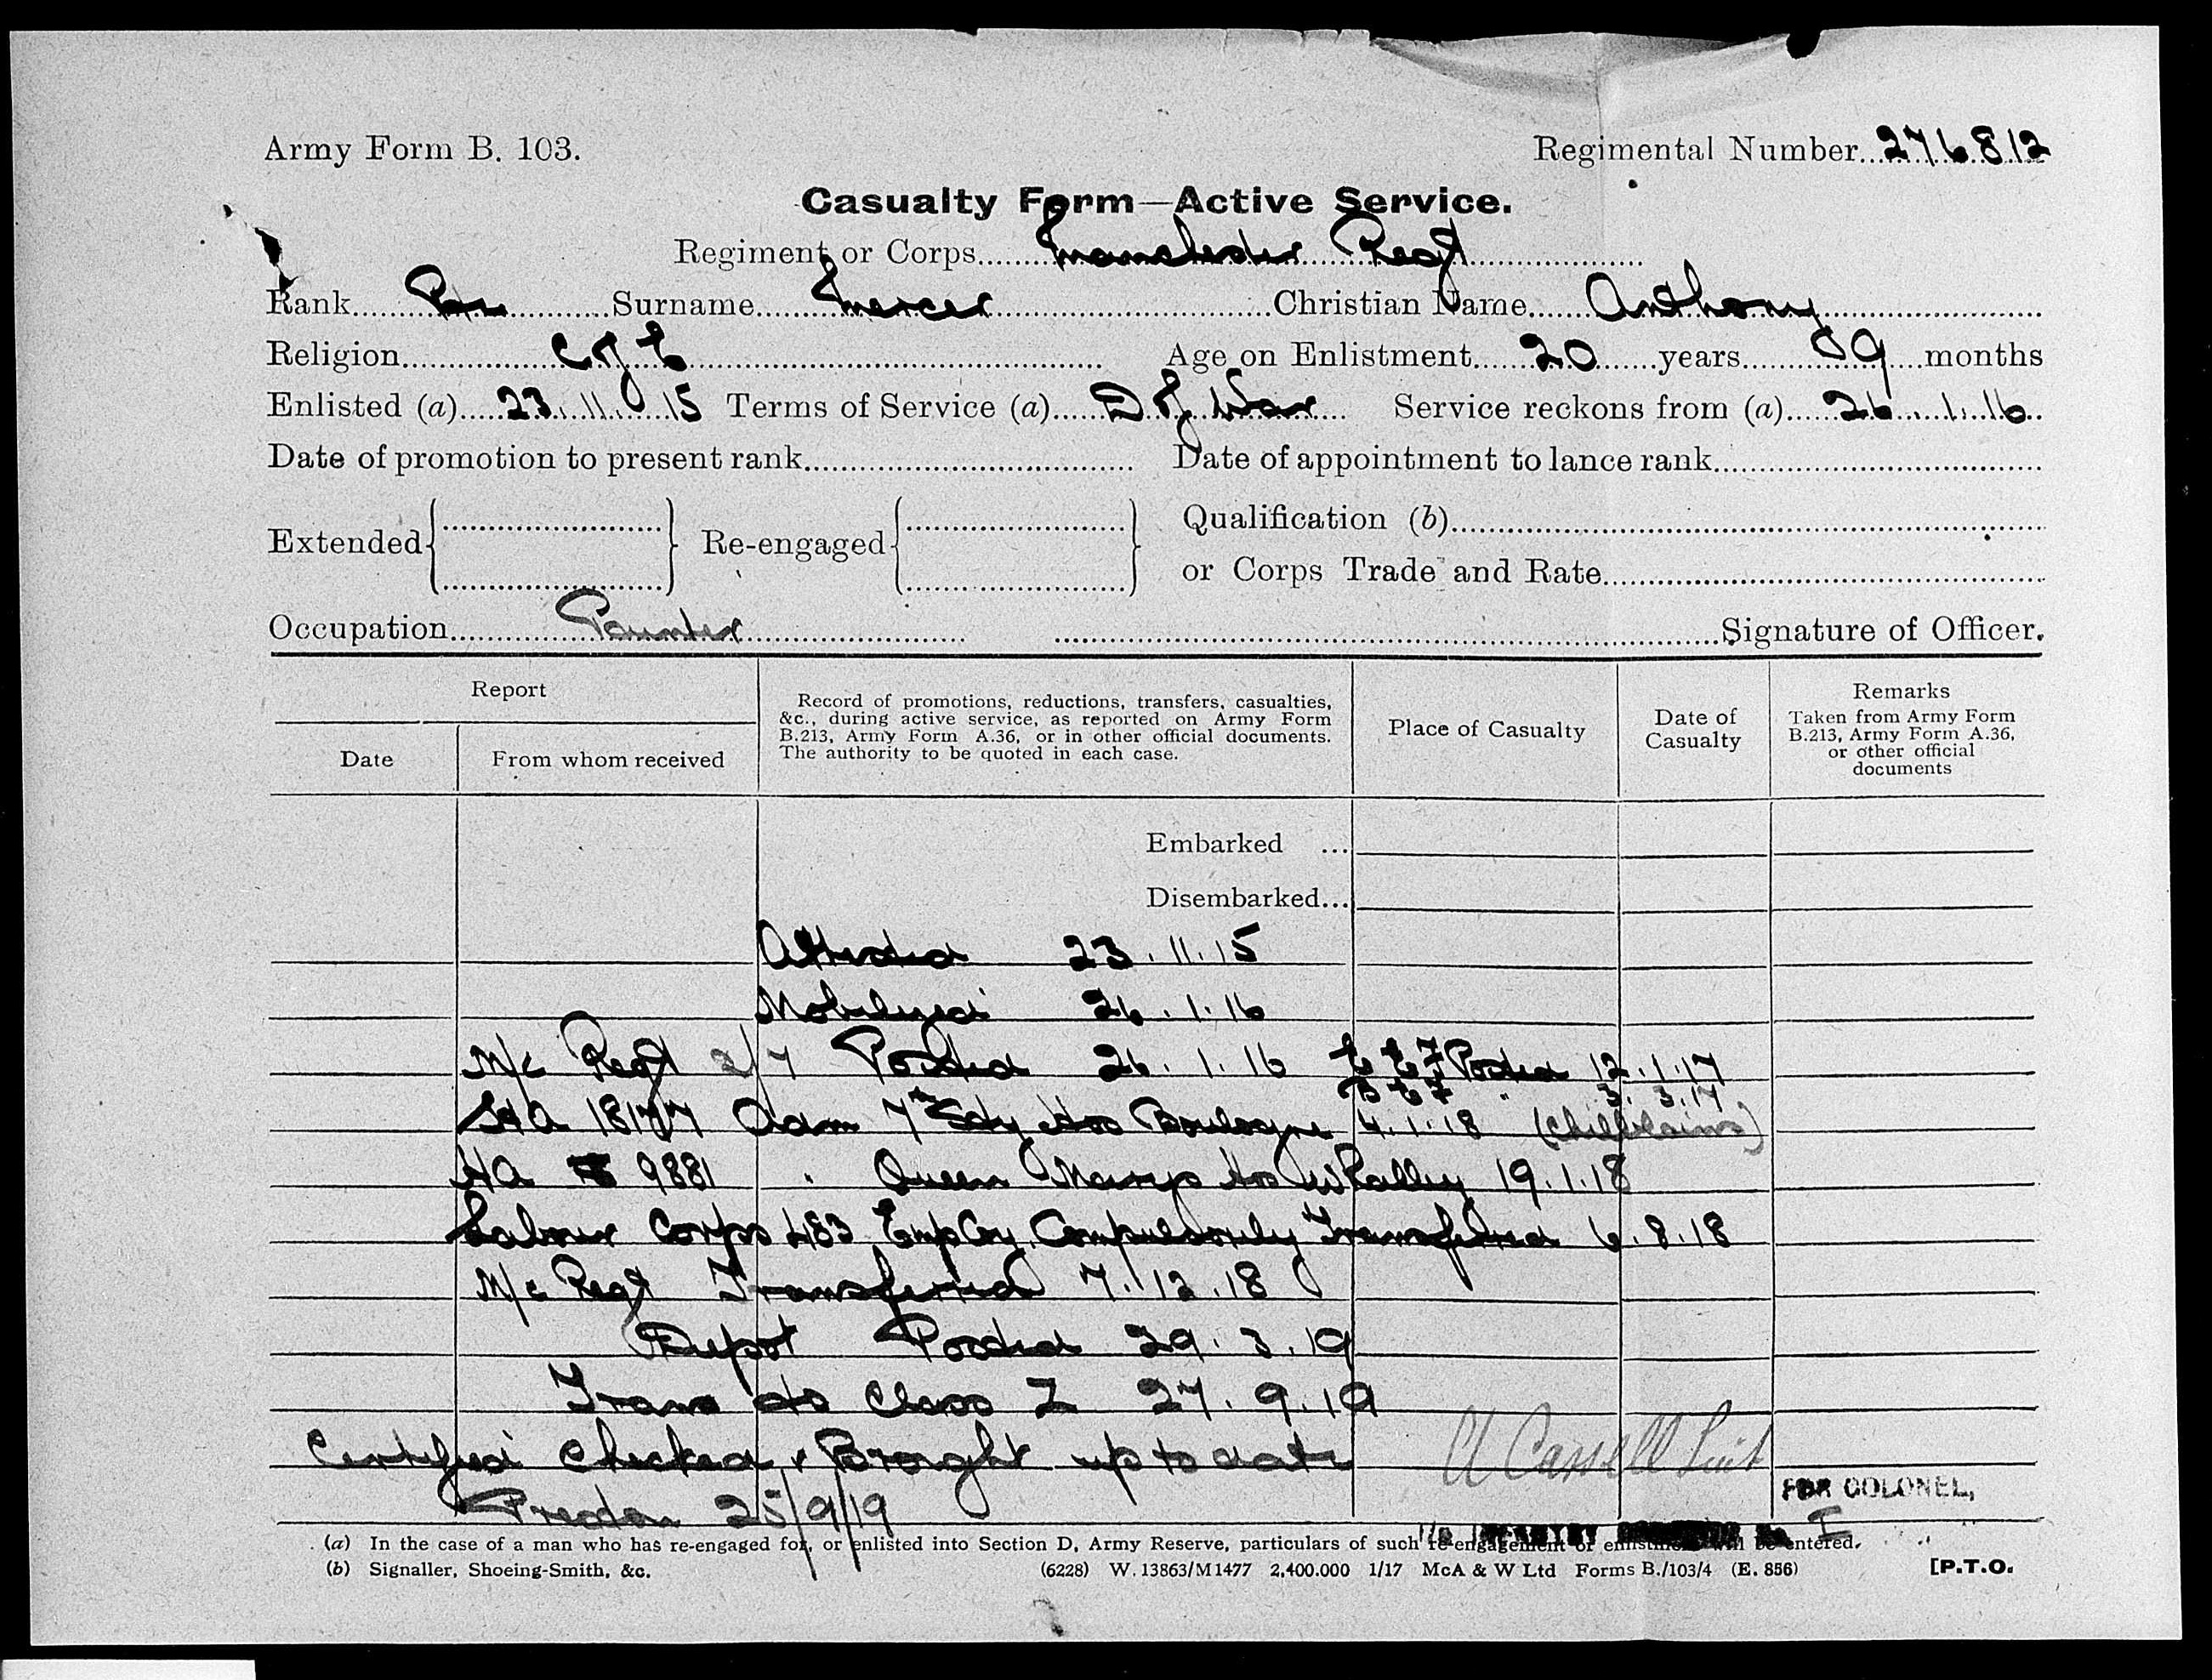 Army Form B. 103. Regimental Number 276812
Casualty Form—Active Service.
Regiment or Corps Manchester Regt
Rank Pte Surname Mercer Christian Name Anthony
Religion C of E Age on Enlistment 20 years 09 months
Enlisted (a) 23.11.15 Terms of Service (a) D of War Service reckons from (a) 26.1.16
Date of promotion to present rank Date of appointment to lance rank
Extended Re-engaged Qualification (b)
or Corps Trade and Rate
Occupation Painter Signature of Officer.
Report
Date From whom received
Record of promotions, reductions, transfers, casualties,
&c., during active service, as reported on Army Form
B.213, Army Form A.36, or in other official documents.
The authority to be quoted in each case.
Place of Casualty
Date of
Casualty
Remarks
Taken from Army Form
B.213, Army Form A.36,
or other official
documents
Embarked ...
Disembarked...
Attested 23.11.15
Mobilised 26.1.16
M/c Regt 2/7 Posted 26.1.16 E E F Posted 12.1.17
B E F " 3.3.17
18177 Adm 7th Sty Hos Boulogne 4.1.18 (Chilblains)
HA 9881 " Queen Marys Hos Whalley 19.1.18
Labour Corps 483 Emp Coy. Compulsorily Transferred 6.8.18
M/c Regt Transferred 7.12.18
Depot Posted 29.3.19
Trans to Class Z 27.9.19
Certified Checked & Brought up to date
Preston 25/9/19
Cassell Lieut
FOR COLONEL,
I/c INFANTRY No I
(a) In the case of a man who has re-engaged for, or enlisted into Section D, Army Reserve, particulars of such re-engagement or enlistment will be entered.
(b) Signaller, Shoeing-Smith, &c. (6228) W. 13863/M1477 2,400.000 1/17 McA & W Ltd Forms B./103/4 (E. 856) [P.T.O.